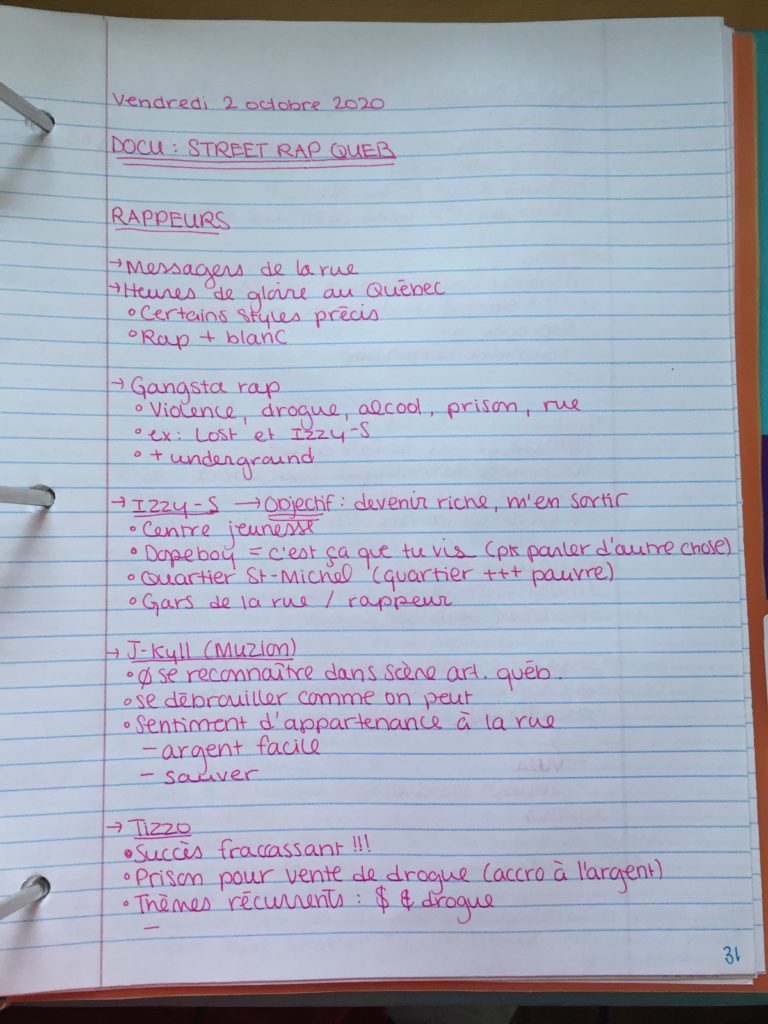 Vendredi 2 octobre 2020
DOCU : STREET RAP QUEB
RAPPEURS
→ Messagers de la rue
→ Heures de gloire au Québec
° Certains styles précis
° Rap + blanc
→ Gangsta rap
° Violence, drogue, alcool, prison, rue
° ex : Lost et Izzy-S
° + underground
→ Izzy-S → Objectif : devenir riche, m'en sortir
° Centre jeunesse
° Dopeboy = c'est ça que tu vis (pk parler d'autre chose)
° Quartier St-Michel (quartier +++ pauvre)
° Gars de la rue / rappeur
→ J-Kyll (Muzion)
° Ø se reconnaître dans scène art. québ.
° se débrouiller comme on peut
° Sentiment d'appartenance à la rue
- argent facile
- sauver
→ Tizzo
° Succès fracassant !!!
° Prison pour vente de drogue (accro à l'argent)
° Thèmes récurrents : $ & drogue
-
31